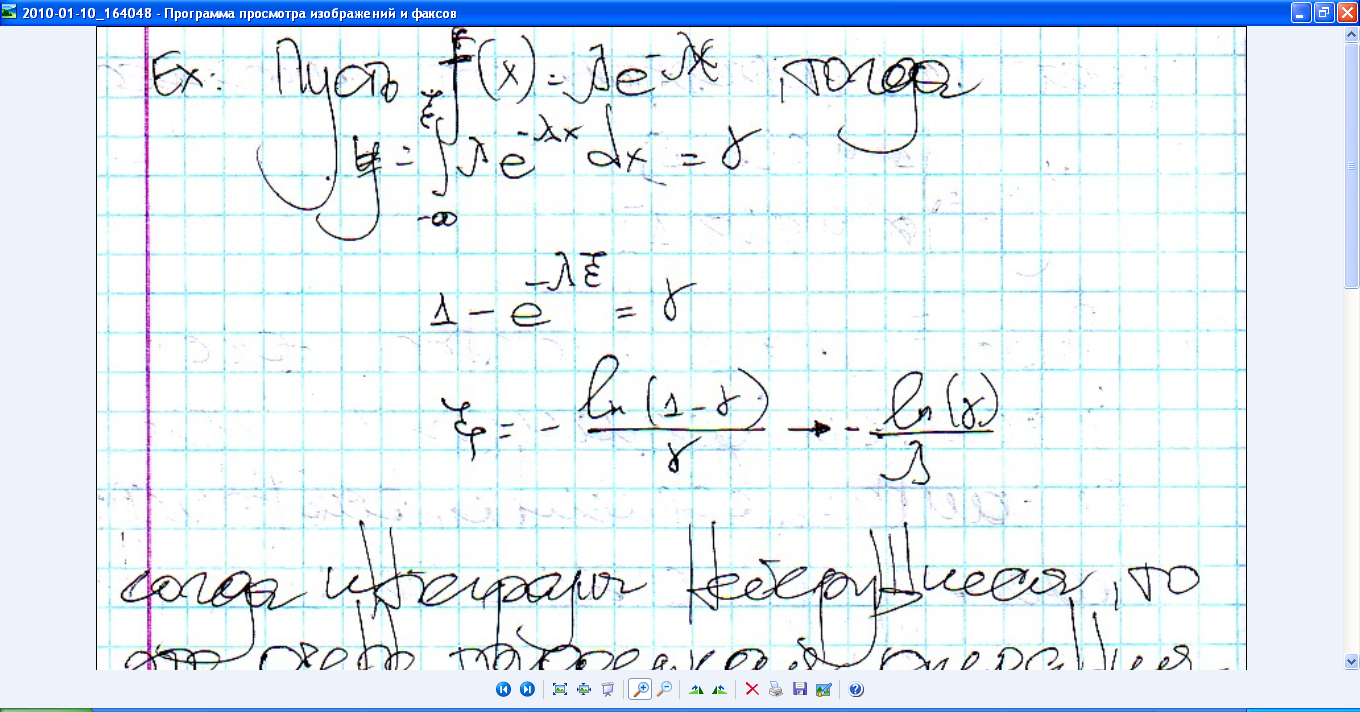 2010-01-10_164048 - Программа просмотра изображений и факсов
Ex: Пусть f(x) = λe^{-λx}, тогда
y = ∫_{-∞}^{ξ} λe^{-λx} dx = γ
1 - e^{-λξ} = γ
ξ = - ln(1-γ)/γ → - ln(γ)/λ
когда интеграл, то